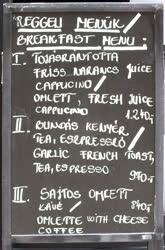 REGGELI MENÜK /
BREAKFAST MENU:
I. TOJÁSRÁNTOTTA
FRISS NARANCS JUICE
CAPPUCINO /
OMLETT, FRESH JUICE
CAPPUCINO
1.240,-
II. BUNDÁS KENYÉR
TEA, ESPRESSÓ /
GARLIC FRENCH TOAST,
TEA, ESPRESSO
940,-
III. SAJTOS OMLETT
KÁVÉ /
OMLETTE WITH CHEESE
COFFEE